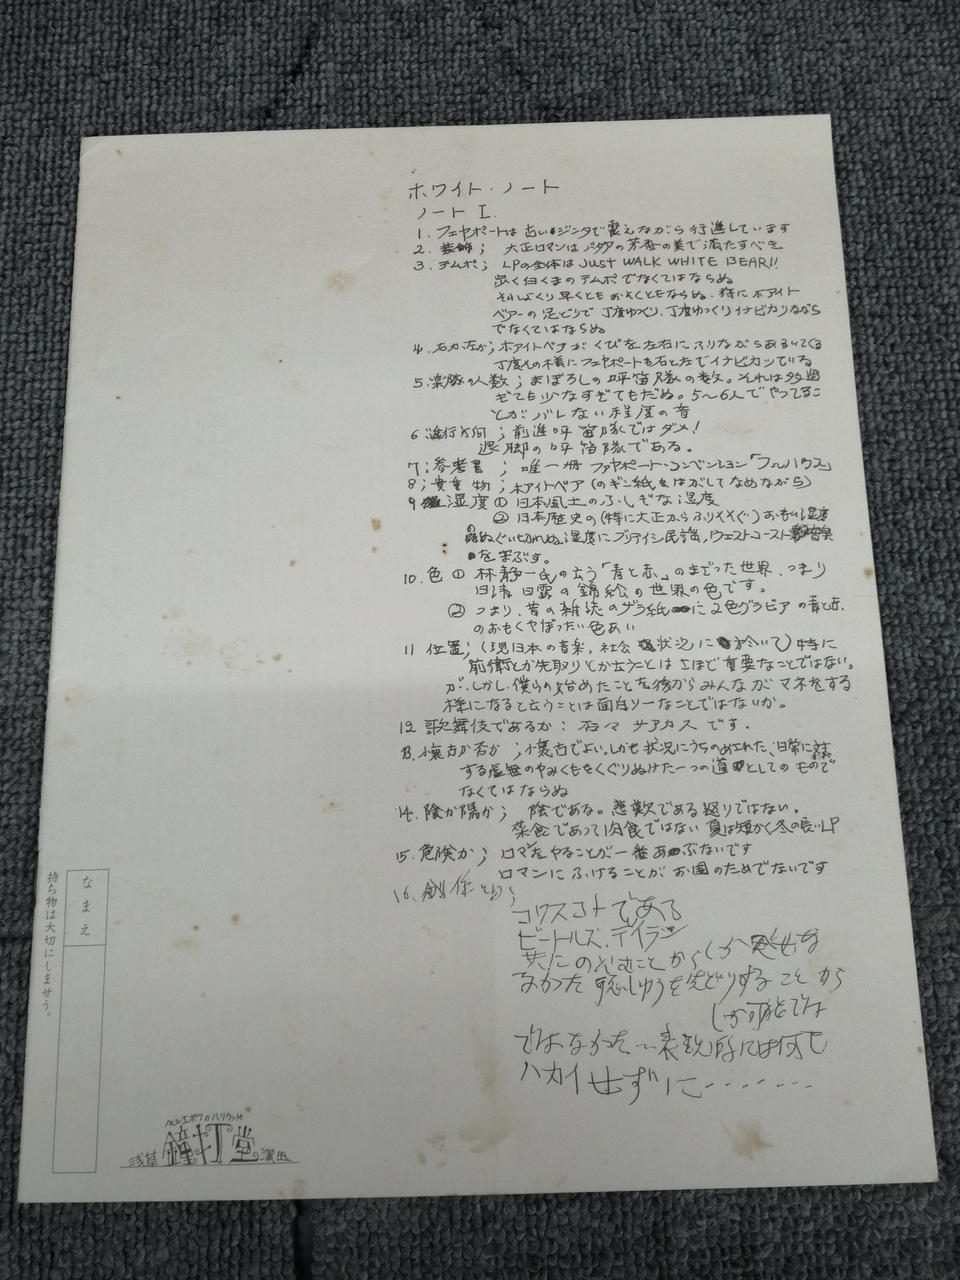 ホワイト・ノート
ノートI.
1. フェヤポートは古いジンタで震えながら行進しています
2. 装飾; 大正ロマンはパタアの芳香の美で満たすべき
3. テムポ; LPの全体はJUST WALK WHITE BEAR!!
歩く白くまのテムポでなくてはならぬ
それよりも早くともおそくともならぬ、特にホアイト
ベアーの足どりで丁度ゆっくり、丁度ゆっくりイナビカリながら
でなくてはならぬ
4. 右か左か; ホアイトベアがくびを左右にふりながらあるいてくる
丁度その様にフェヤポートも右と左でイナビカッている
5. 楽隊の人数; まぼろしの呼笛隊の数。それは多過
ぎても少なすぎてもだめ。5〜6人でやってるこ
とがバレない程度の音
6 進行方向; 前進呼笛隊ではダメ!
退脚の呼笛隊である。
7; 参考書; 唯一冊 ファヤポート・コンベンション「フルハウス」
8; 貴重物; ホアイトベア(のギン紙をはがしてなめながら)
9 湿度 ① 日本風土のふしぎな湿度
② 日本歴史の(特に大正からふりそそぐ)おもい湿度
のぬぐい切れぬ湿度にブリテイシ民謡,ウエストコースト音楽
をまぶす。
10. 色 ① 林静一氏の云う「青と赤」のまざった世界、つまり
日清日露の錦絵の世界の色です。
② つまり、昔の雑誌のザラ紙に2色グラビアの青と赤
のおもくやぼったい色あい
11 位置; (現日本の音楽,社会状況に於いて)特に
前衛とか先取りとか云うことはさほど重要なことではない。
が、しかし、僕らの始めたことを後からみんながマネをする
様になると云うことは面白ソーなことではないか。
12 歌舞伎であるか: 否々サアカスです.
13. 懐古か否か; 懐古でよい,しかも状況にうちのめされた、日常に対
する虚無のやみくもをくぐりぬけた一つの道としてのもので
なくてはならぬ
14. 陰か陽か; 陰である。悲歎である怒りではない.
菜食であって肉食ではない 夏は短かく冬の長いLP
15. 危険か; ロマンをやることが一番あぶないです
ロマンにふけることがお国のためでないです
16、創作とは;
コワスコトである
ビートルズ、デイラン
共にのぞむことからしか
なかった 聴しゅうを先どりすることから
しか可能では
ではなかった〜表現的には何も
ハカイせずに‥‥‥‥
なまえ
持ち物は大切にしませう。
ベルエポックのハリケット
浅草 鐘打堂の濱田